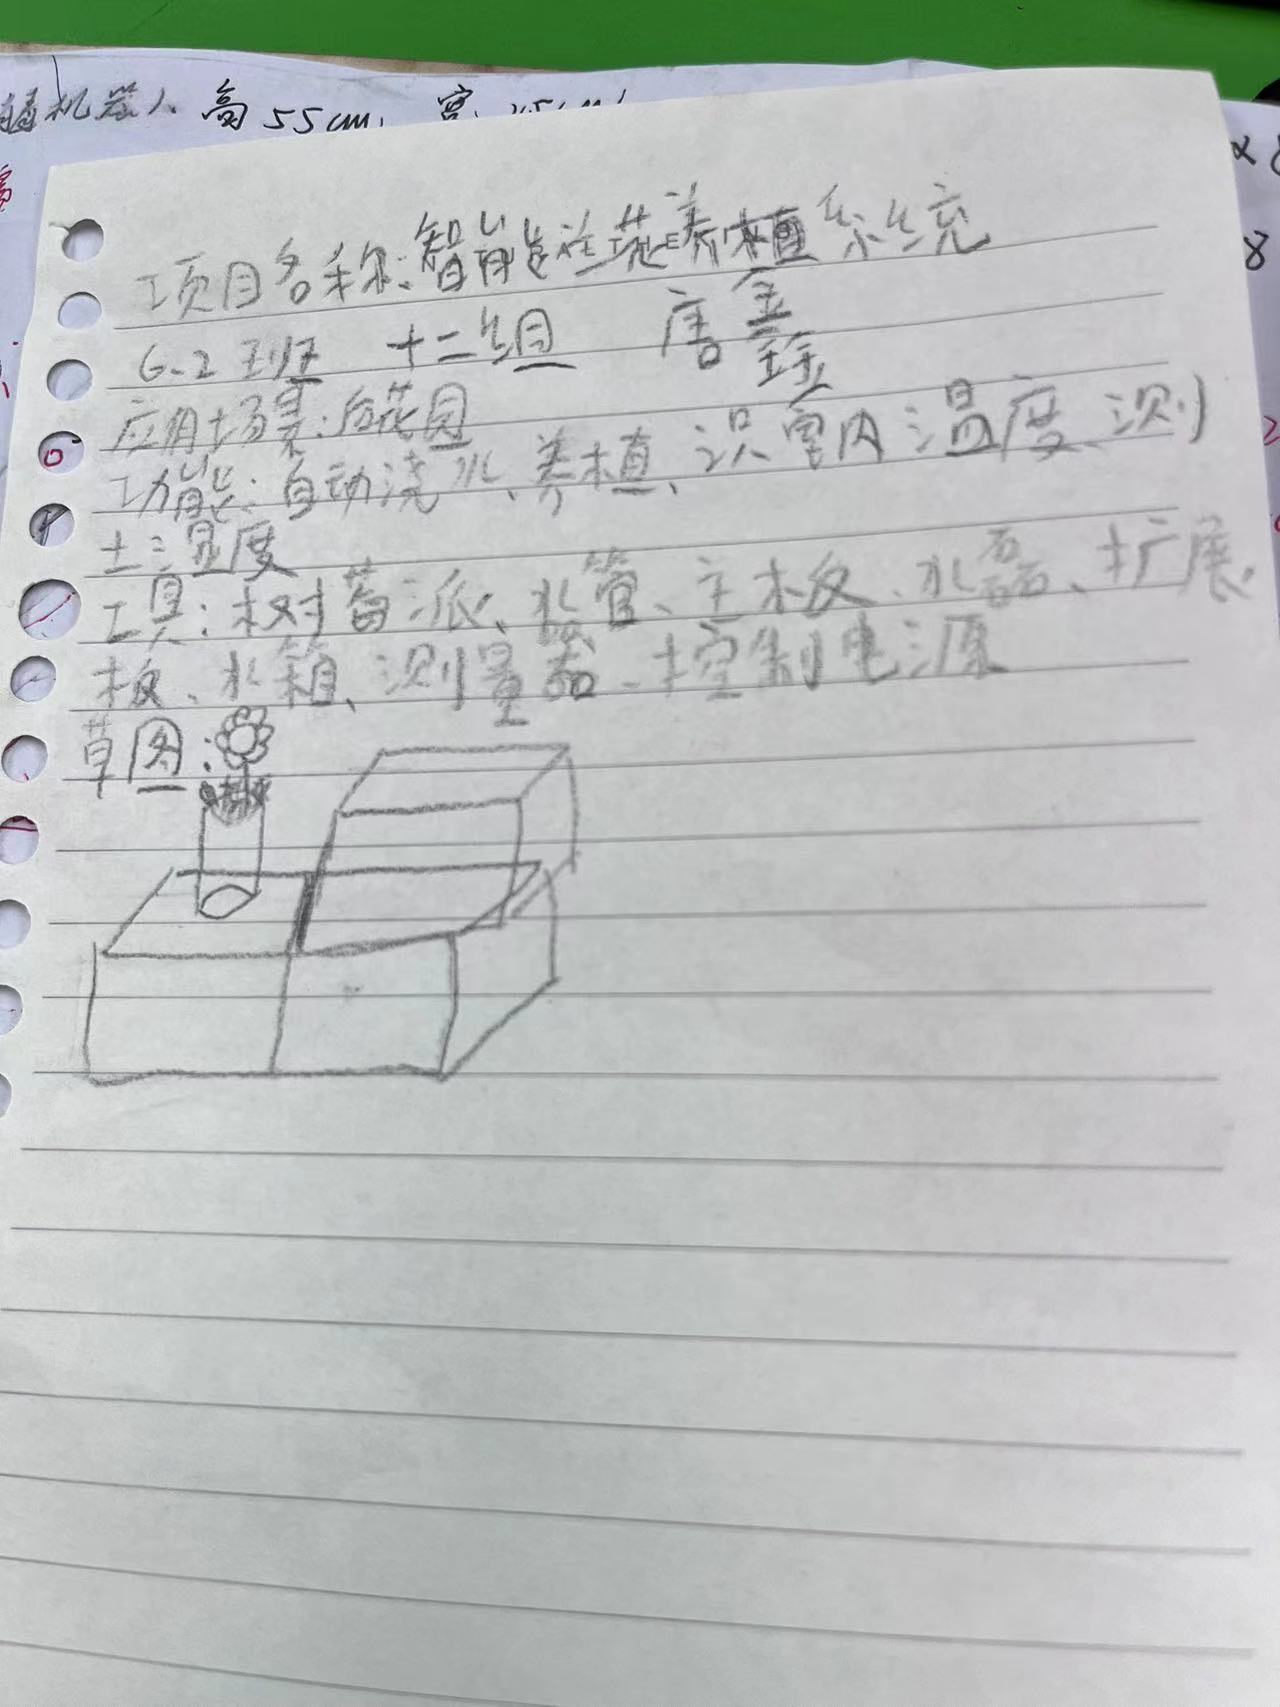 机器人 高55cm,
项目名称:智能养植系统
6.2班 十二组 唐鑫
应用场景:后花园
功能:自动浇水、养植、识室内温度、测
土湿度
工具:树莓派、水管、主板、水磊、扩展
板、水箱、测量器、控制电源
草图:
8